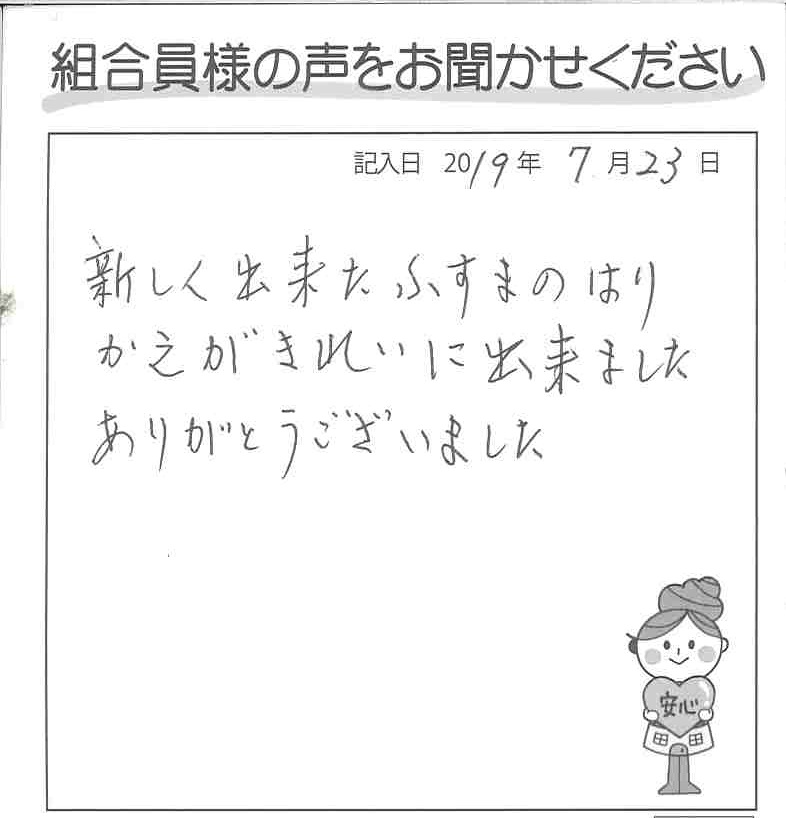 組合員様の声をお聞かせください
記入日 2019年 7月23日
新しく出来たふすまのはり
かえがきれいに出来ました
ありがとうございました
安心